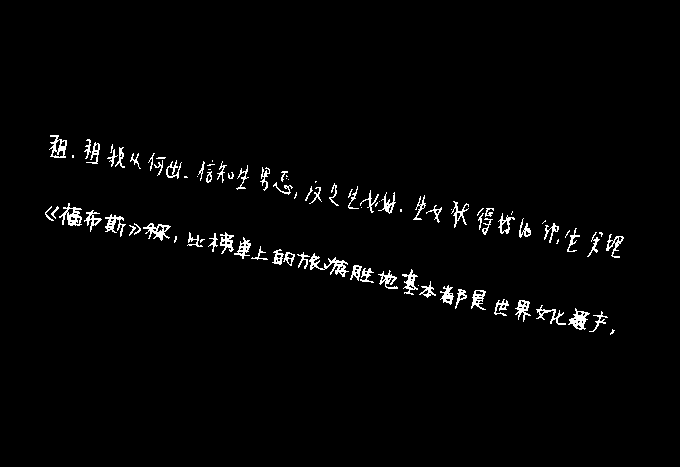 租.租税从何出.信知生男恶,反是生女好.生女犹得嫁比邻,生男埋
《福布斯》称,此榜单上的旅游胜地基本都是世界文化遗产,